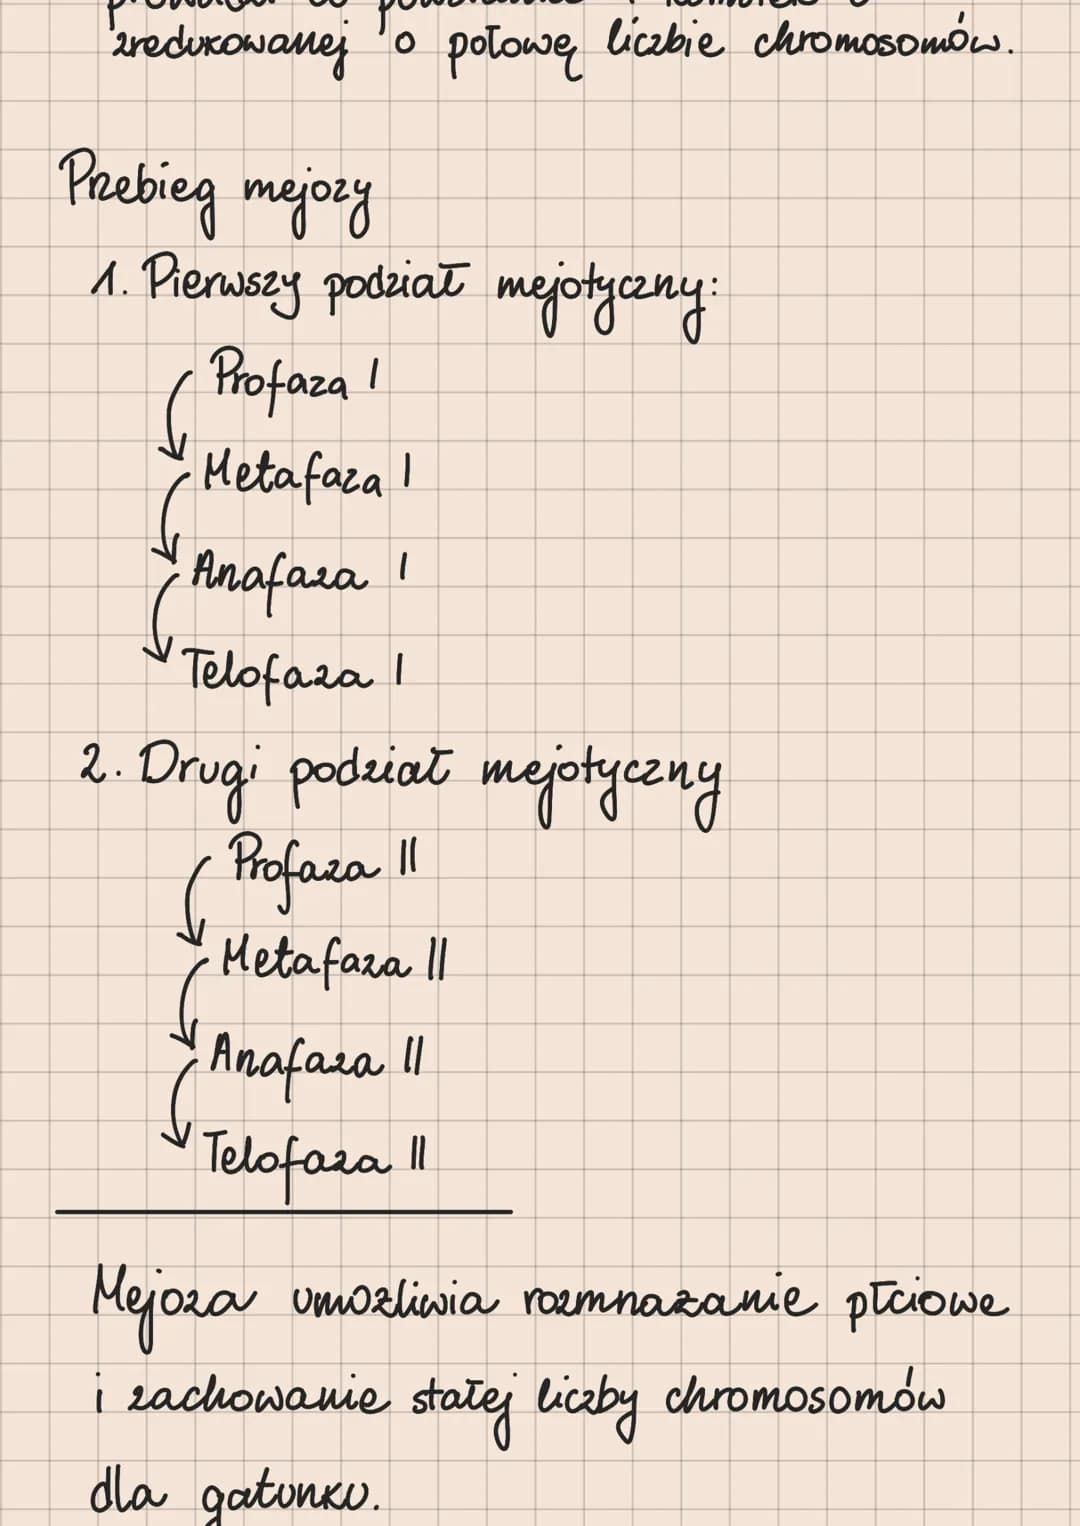 zredukowanej o połowę liczbie chromosomów.
Przebieg mejozy
1. Pierwszy podział mejotyczny:
Profaza I
Metafaza I
Anafaza I
Telofaza I
2. Drugi podział mejotyczny
Profaza II
Metafaza II
Anafaza II
Telofaza II
Mejoza umożliwia rozmnażanie płciowe
i zachowanie stałej liczby chromosomów
dla gatunku.